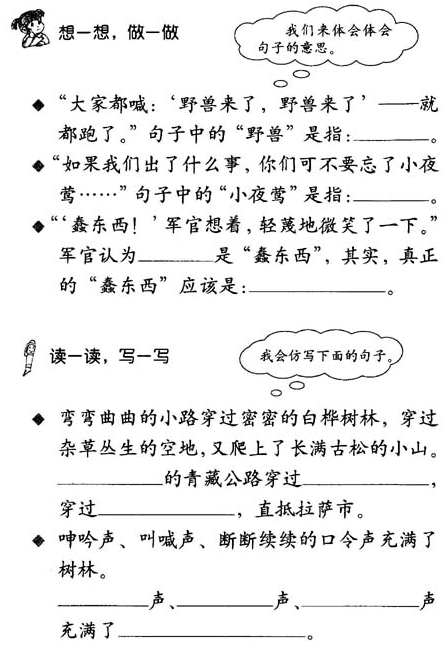 想一想，做一做
我们来体会体会
句子的意思。
◆“大家都喊：‘野兽来了，野兽来了’——就
都跑了。”句子中的“野兽”是指：________。
◆“如果我们出了什么事，你们可不要忘了小夜
莺……”句子中的“小夜莺”是指：________。
◆“‘蠢东西！’军官想着，轻蔑地微笑了一下。”
军官认为________是“蠢东西”，其实，真正
的“蠢东西”应该是：______________。
读一读，写一写
我会仿写下面的句子。
◆ 弯弯曲曲的小路穿过密密的白桦树林，穿过
杂草丛生的空地，又爬上了长满古松的小山。
__________的青藏公路穿过____________，
穿过______________，直抵拉萨市。
◆ 呻吟声、叫喊声、断断续续的口令声充满了
树林。
________声、________声、__________声
充满了________________。